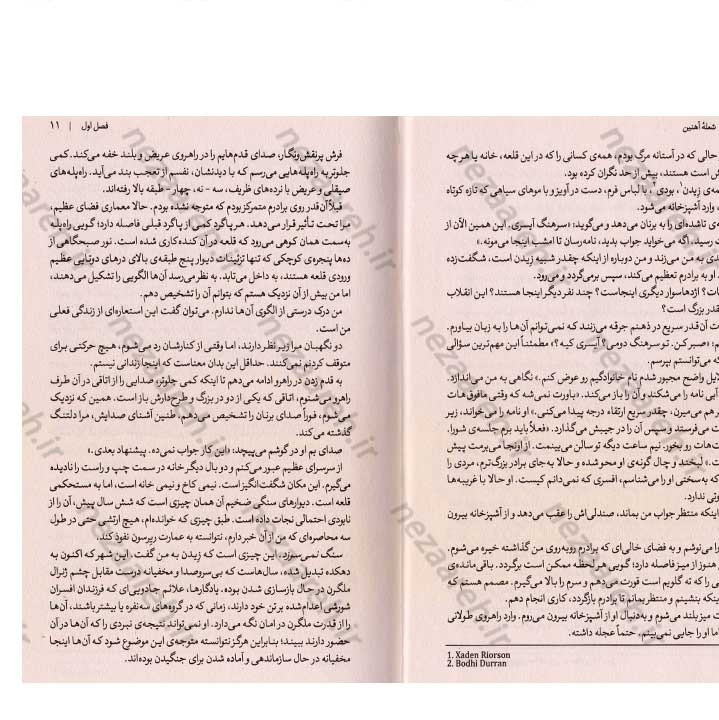 شعلهٔ آهنین
حالی که در آستانه مرگ بودم، همه‌ی کسانی را که در این قلعه، خانه یا هر چه
ش است هستند، بیش از حد نگران کرده بود.
مه‌ی زیدن¹، بودی²، با لباس فرم، دست در آویز و با موهای سیاهی که تازه کوتاه
، وارد آشپزخانه می‌شود.
ه‌ی تاشده‌ای را به برنان می‌دهد و می‌گوید: «سرهنگ آیسری. این همین الآن از
رسید. اگه می‌خواید جواب بدید، نامه‌رسان تا امشب اینجا می‌مونه.»
دی به من می‌زند و من دوباره از اینکه چقدر شبیه زیدن است، شگفت‌زده
. او به برادرم تعظیم می‌کند، سپس برمی‌گردد و می‌رود.
ات؟ اژدهاسوار دیگری اینجاست؟ چند نفر دیگر اینجا هستند؟ این انقلاب
قدر بزرگ است؟
ت آن‌قدر سریع در ذهنم جرقه می‌زنند که نمی‌توانم آن‌ها را به زبان بیاورم.
م: «صبر کن. تو سرهنگ دومی؟ آیسری کیه؟» مطمئناً این مهم‌ترین سؤالی
که می‌توانستم بپرسم.
لایل واضح مجبور شدم نام خانوادگیم رو عوض کنم.» نگاهی به من می‌اندازد.
آبی نامه را می‌شکند و آن را باز می‌کند. «باورت نمی‌شه که وقتی مافوق‌هات
هم می‌میرن، چقدر سریع ارتقاء درجه پیدا می‌کنی.» او نامه را می‌خواند، زیر
ت می‌فرستد و سپس آن را در جیبش می‌گذارد. «فعلاً باید برم جلسه‌ی شورا.
ت‌هات رو بخور. نیم ساعت دیگه تو سالن می‌بینمت. از اونجا می‌برمت پیش
ت.» لبخند و چال گونه‌ی او محو شده و حالا به‌جای برادر بزرگ‌ترم، مردی را
که به‌سختی او را می‌شناسم، افسری که نمی‌دانم کیست. او حالا با غریبه‌ها
وتی ندارد.
اینکه منتظر جواب من بماند، صندلی‌اش را عقب می‌دهد و از آشپزخانه بیرون
را می‌نوشم و به فضای خالی‌ای که برادرم روبه‌روی من گذاشته خیره می‌شوم.
هنوز از میز فاصله دارد؛ گویی هر لحظه ممکن است برگردد. باقی‌مانده‌ی
ی را که ته گلویم است قورت می‌دهم و سرم را بالا می‌گیرم. مصمم هستم که
اینکه بنشینم و منتظر بمانم تا برادرم بازگردد، کاری انجام دهم.
ت میز بلند می‌شوم و به‌دنبال او از آشپزخانه بیرون می‌روم. وارد راهروی طولانی
ما او را جایی نمی‌بینم. حتماً عجله داشته.
1. Xaden Riorson
2. Bodhi Durran
فصل اول | ۱۱
فرش پرنقش‌ونگار، صدای قدم‌هایم را در راهروی عریض و بلند خفه می‌کند. کمی
جلوتر به راه‌پله‌هایی می‌رسم که با دیدنشان، نفسم از تعجب بند می‌آید. راه‌پله‌های
صیقلی و عریض با نرده‌های ظریف، سه - نه، چهار - طبقه بالا رفته‌اند.
قبلاً آن‌قدر روی برادرم متمرکز بودم که متوجه نشده بودم. حالا معماری فضای عظیم،
مرا تحت تأثیر قرار می‌دهد. هر پاگرد کمی از پاگرد قبلی فاصله دارد؛ گویی راه‌پله
به‌سمت همان کوهی می‌رود که قلعه در آن کنده‌کاری شده است. نور صبحگاهی از
ده‌ها پنجره‌ی کوچکی که تنها تزئینات دیوار پنج طبقه‌ی بالای درهای دوتایی عظیم
ورودی قلعه هستند، به داخل می‌تابد. به نظر می‌رسد آن‌ها الگویی را تشکیل می‌دهند،
اما من بیش از آن نزدیک هستم که بتوانم آن را تشخیص دهم.
من درک درستی از الگوی آن‌ها ندارم. می‌توان گفت این استعاره‌ای از زندگی فعلی
من است.
دو نگهبان مرا زیر نظر دارند، اما وقتی از کنارشان رد می‌شوم، هیچ حرکتی برای
متوقف کردنم نمی‌کنند. حداقل این بدان معناست که اینجا زندانی نیستم.
به قدم زدن در راهرو ادامه می‌دهم تا اینکه کمی جلوتر، صدایی را از اتاقی در آن طرف
راهرو می‌شنوم، اتاقی که یکی از دو در بزرگ و طرح‌دارش باز است. همین که نزدیک
می‌شوم، فوراً صدای برنان را تشخیص می‌دهم، طنین آشنای صدایش، مرا دلتنگ
گذشته می‌کند.
صدای بم او در گوشم می‌پیچد: «این کار جواب نمی‌ده. پیشنهاد بعدی.»
از سرسرای عظیم عبور می‌کنم و دو بال دیگر خانه در سمت چپ و راست را نادیده
می‌گیرم. این مکان شگفت‌انگیز است. نیمی کاخ و نیمی خانه است، اما به مستحکمی
قلعه است. دیوارهای سنگی ضخیم آن همان چیزی است که شش سال پیش، آن را از
نابودی احتمالی نجات داده است. طبق چیزی که خوانده‌ام، هیچ ارتشی حتی در طول
سه محاصره‌ای که من از آن خبر دارم، نتوانسته به عمارت ریِرسون نفوذ کند.
سنگ نمی‌سوزد. این چیزی است که زیدن به من گفت. این شهر که اکنون به
دهکده تبدیل شده، سال‌هاست که بی‌سروصدا و مخفیانه درست مقابل چشم ژنرال
ملگرن در حال بازسازی شدن بوده. یادگارها، علائم جادویی‌ای که فرزندان افسران
شورشی اعدام‌شده بر تن خود دارند، زمانی که در گروه‌های سه‌نفره یا بیشتر باشند، آن‌ها
را از قدرت ملگرن در امان نگه می‌دارد. او نمی‌تواند نتیجه‌ی نبردی را که آن‌ها در آن
حضور دارند ببیند؛ بنابراین هرگز نتوانسته متوجه‌ی این موضوع شود که آن‌ها اینجا
مخفیانه در حال سازماندهی و آماده شدن برای جنگیدن بوده‌اند.